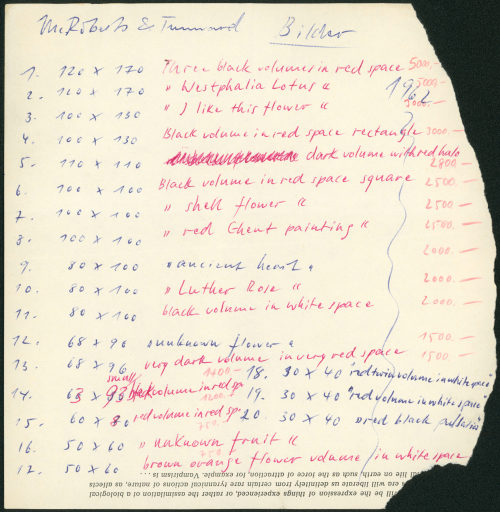 McRoberts & Tunnard Bilder
1. 120 x 170 Three black volumes in red space 5000.—
2. 120 x 170 "Westphalia Lotus" 5000.—
1962
3. 100 x 130 "I like this flower" 3000.—
4. 100 x 130 Black volume in red space rectangle 3000.—
5. 110 x 110 dark volume with red halo 2800.—
6. 100 x 100 Black volume in red space square 2500.—
7. 100 x 100 "shell flower" 2500.—
8. 100 x 100 "red Ghent painting" 2500.—
9. 80 x 100 "ancient heart" 2000.—
10. 80 x 100 "Luther Rose" 2000.—
11. 80 x 100 black volume in white space 2000.—
12. 68 x 96 "unknown flower" 1500.—
13. 68 x 96 very dark volume in very red space 1500.—
14. 63 x 93 small black volume in red spa 18. 30 x 40 "red twin volume in white space"
15. 60 x 80 red volume in red spa 19. 30 x 40 "red volume in white space"
20. 30 x 40 "red black
16. 50 x 60 "unknown fruit"
17. 50 x 60 brown orange flower volume in white space
life on earth, such as the force of attraction, for example. Vampirism is
era will liberate us definitely from certain rare tyrannical actions of nature, as affects
will be the expression of things of experienced, or rather the assimilation of a biological